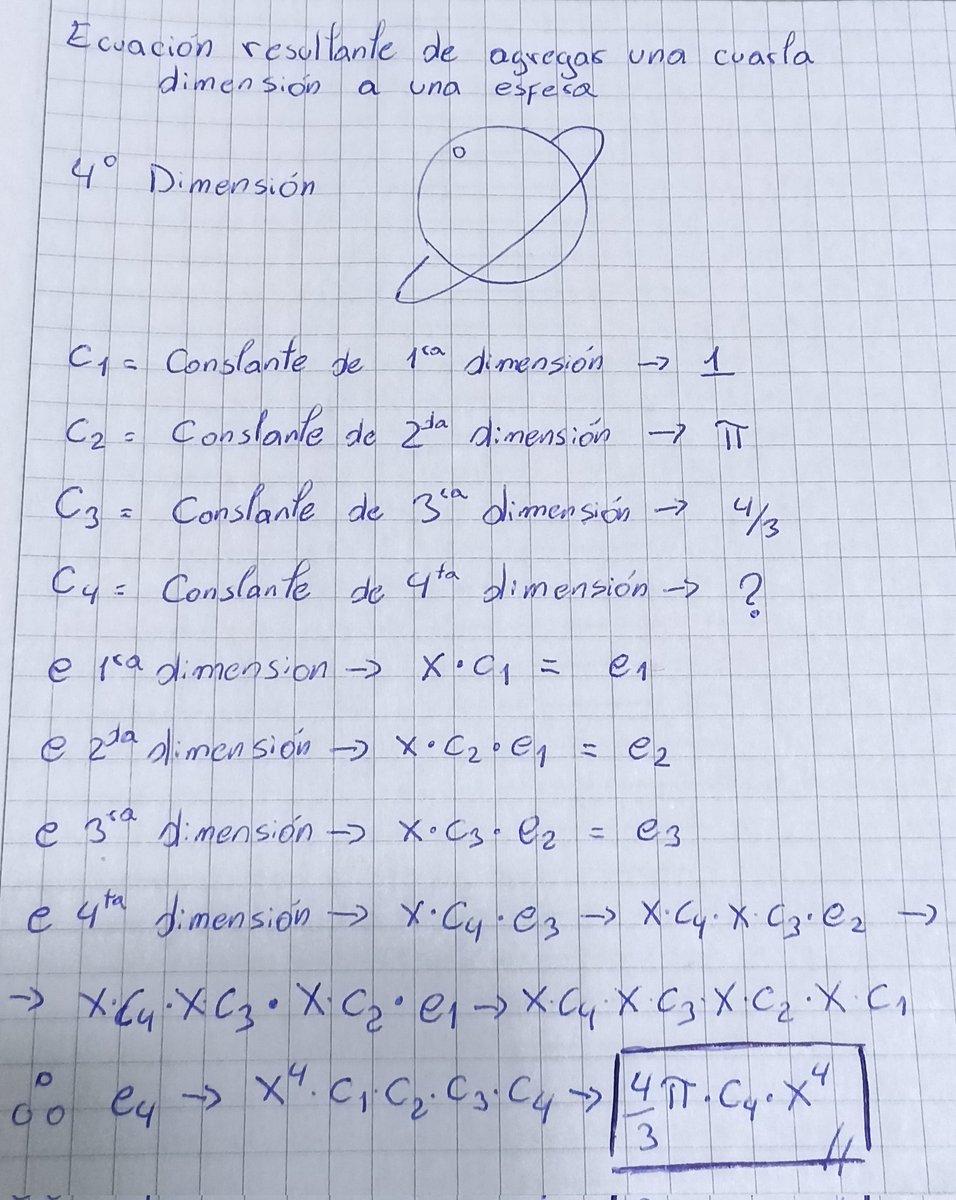 Ecuación resultante de agregar una cuarta
dimensión a una esfera
4° Dimensión
C1 = Constante de 1ra dimensión → 1
C2 = Constante de 2da dimensión → π
C3 = Constante de 3ra dimensión → 4/3
C4 = Constante de 4ta dimensión → ?
e 1ra dimension → x·c1 = e1
e 2da dimensión → x·c2·e1 = e2
e 3ra dimensión → x·c3·e2 = e3
e 4ta dimensión → x·c4·e3 → x·c4·x·c3·e2 →
→ x·c4·x·c3·x·c2·e1 → x·c4·x·c3·x·c2·x·c1
∴ e4 → x⁴·c1·c2·c3·c4 → 4/3 π·c4·x⁴ //